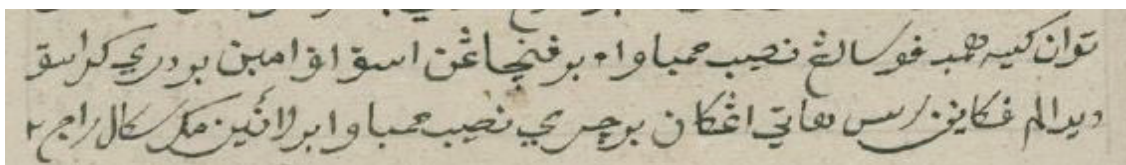 توان كيه همب ڤوسالڠ نصيب ممباوا برڤنجاڠن اسوق امبن بردري كراسو
ديدالم ڤكاين رسس هاتي اڠكان برچري نصيب ممباوا برلائين مك سكال راج٢